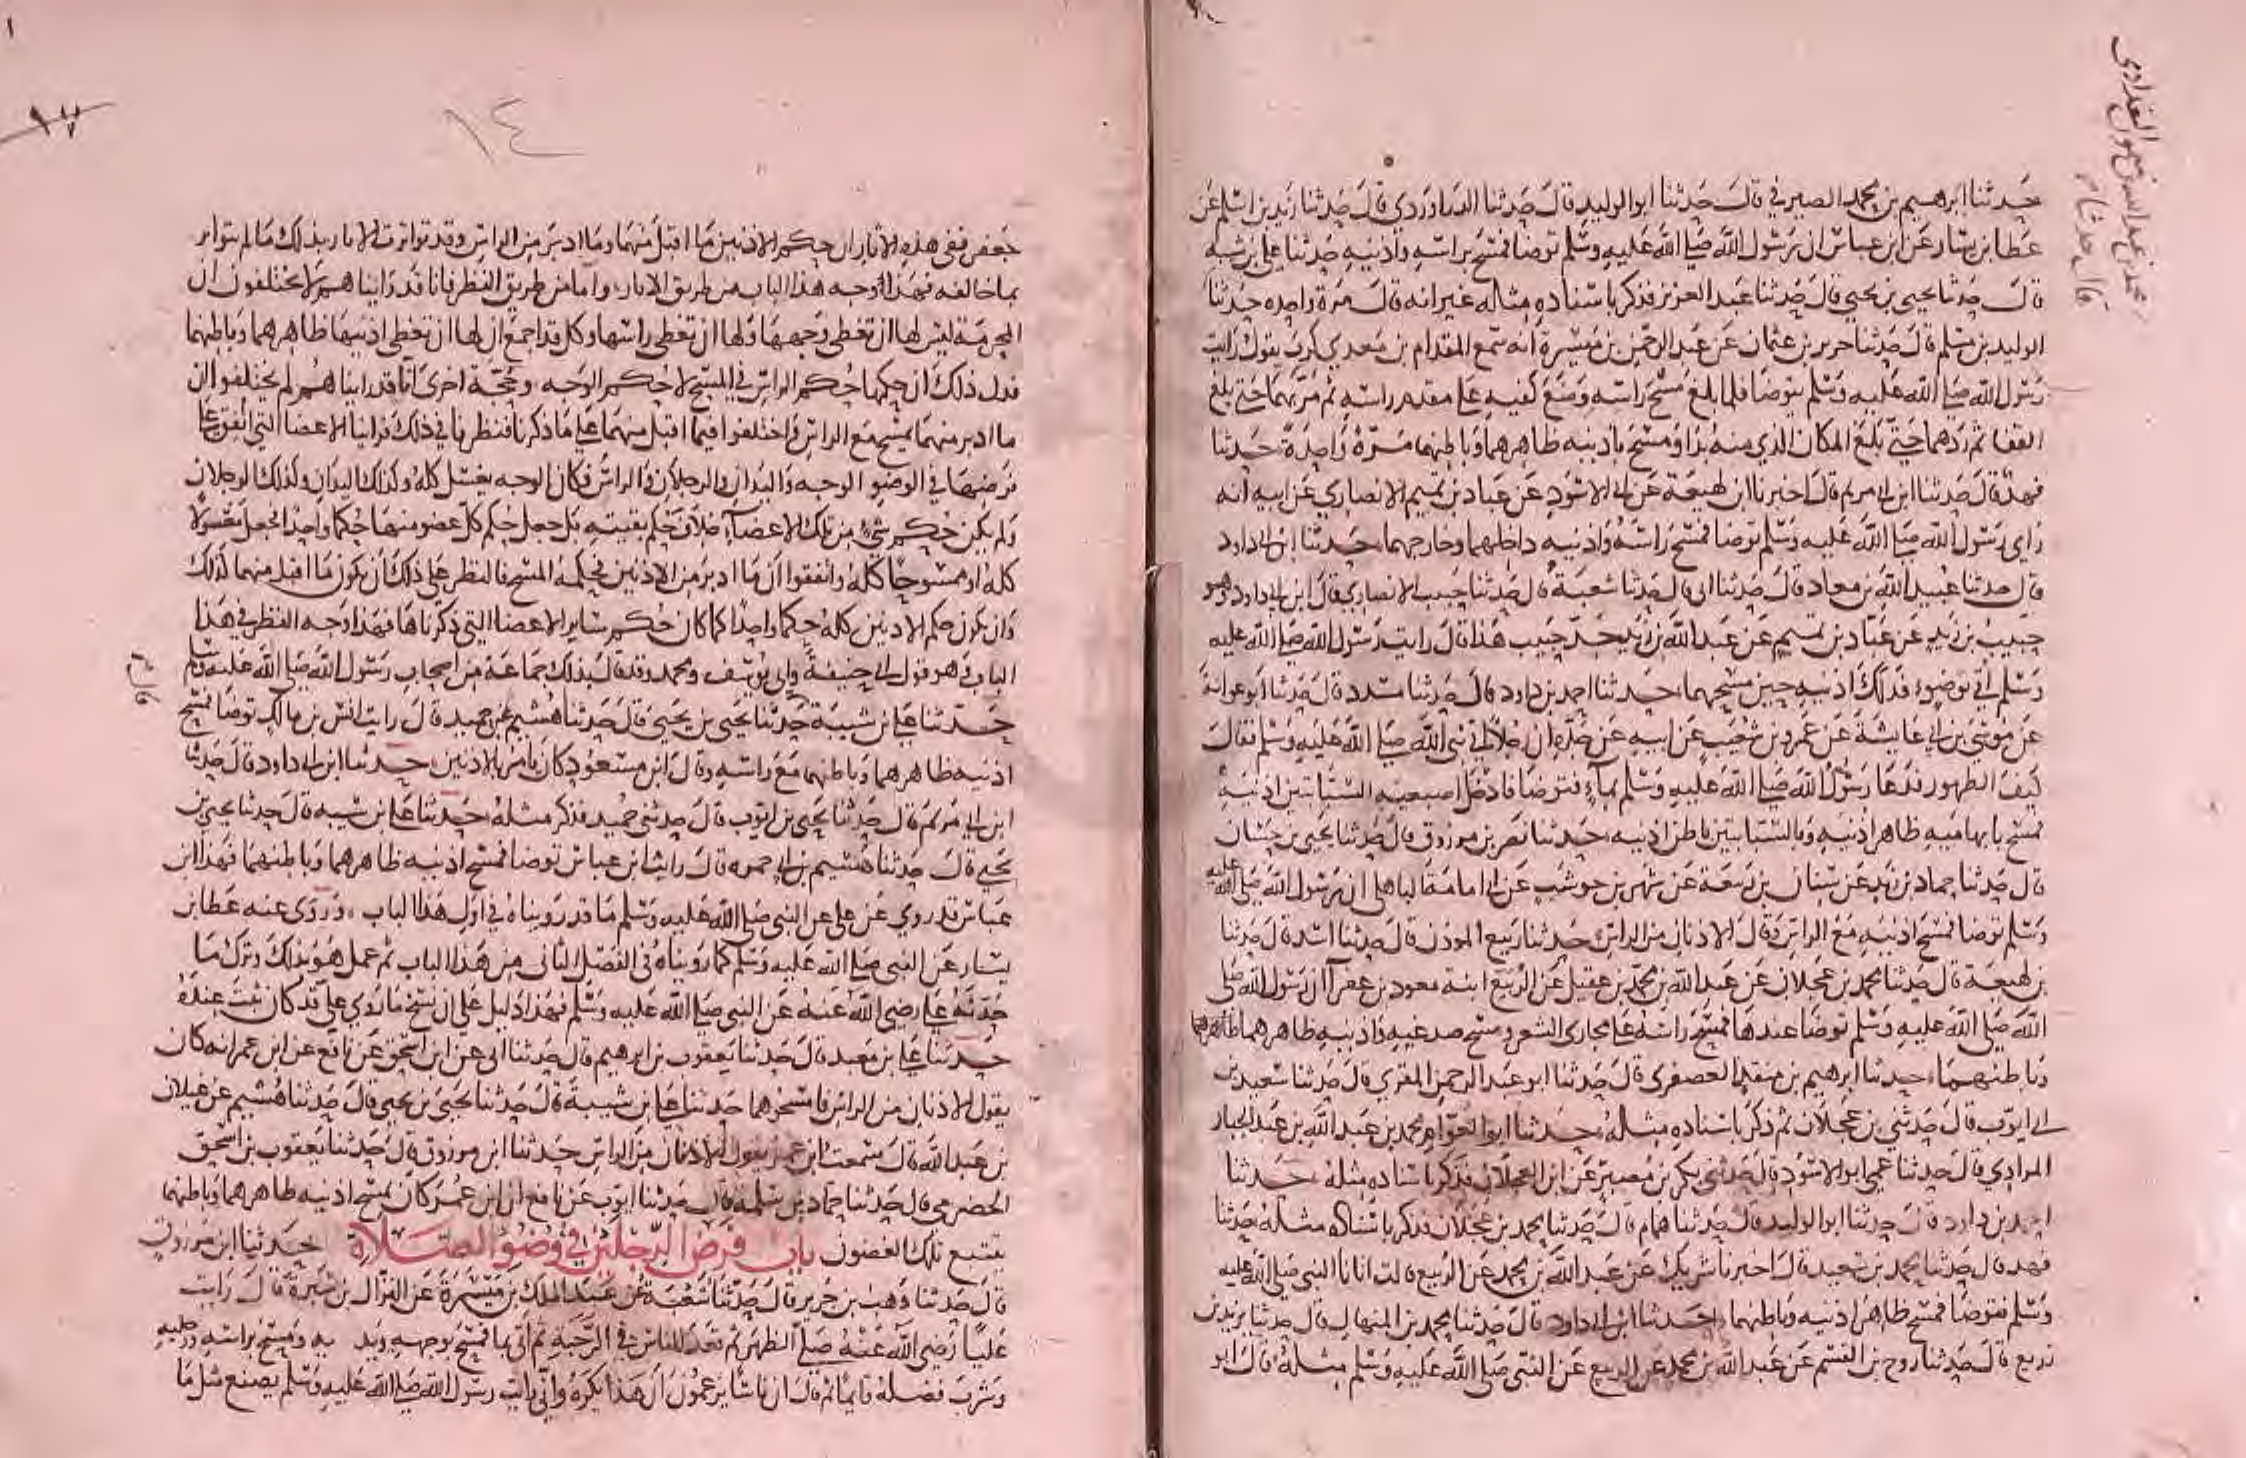 حدثنا ابرهيم بن محمد الصيرفي قال حدثنا ابو الوليد قال حدثنا الدراوردي قال حدثنا زيد بن اسلم عن
عطا بن يسار عن ابن عباس ان رسول الله صلى الله عليه وسلم توضا فمسح براسه واذنيه حدثنا علي بن شيبه
قال حدثنا يحيى بن يحيى قال حدثنا عبد العزيز فذكر باسناده مثله غير انه قال مرة واحده حدثنا
الوليد بن مسلم قال حدثنا حريز بن عثمان عن عبد الرحمن بن ميسرة انه سمع المقدام بن معدي كرب يقول رايت
رسول الله صلى الله عليه وسلم يتوضا فلما بلغ مسح راسه وضع كفيه على مقدم راسه ثم مر بهما حتى بلغ
القفا ثم ردهما حتى بلغ المكان الذي منه بدا ومسح باذنيه ظاهرهما وباطنهما مرة واحدة حدثنا
فهد قال حدثنا ابن ابي مريم قال اخبرنا ابن لهيعة عن ابي الاسود عن عباد بن تميم الانصاري عن ابيه انه
راي رسول الله صلى الله عليه وسلم توضا فمسح راسه واذنيه داخلهما وخارجهما حدثنا ابن ابي داود
قال حدثنا عبيد الله بن معاد قال حدثنا ابي قال حدثنا شعبة قال حدثنا حبيب الانصاري قال ابن ابي داود وهو
حبيب بن زيد عن عباد بن تميم عن عبد الله بن زيد جد حبيب هذا قال رايت رسول الله صلى الله عليه
وسلم اتي بوضوء فدلك اذنيه حين مسحهما حدثنا احمد بن داود قال حدثنا مسدد قال حدثنا ابو عوانة
عن موسى بن ابي عايشة عن عمرو بن شعيب عن ابيه عن جده ان رجلا اتى نبي الله صلى الله عليه وسلم فقال
كيف الطهور فدعا رسول الله صلى الله عليه وسلم بماء فتوضا فادخل اصبعيه السبابتين اذنيه
فمسح بابهاميه ظاهر اذنيه وبالسبابتين باطن اذنيه حدثنا نصر بن مرزوق قال حدثنا يحيى بن حسان
قال حدثنا حماد بن زيد عن سنان بن ربيعة عن شهر بن حوشب عن ابي امامة الباهلي ان رسول الله صلى الله عليه
وسلم توضا فمسح اذنيه مع الراس وقال الاذنان من الراس حدثنا ربيع الموذن قال حدثنا اسد قال حدثنا
بن لهيعة قال حدثنا محمد بن عجلان عن عبد الله بن محمد بن عقيل عن الربيع ابنة معود بن عفرا ان رسول الله صلى
الله صلى الله عليه وسلم توضا عندها فمسح راسه على مجاري الشعر ومسح صدغيه واذنيه ظاهرهما ظاهرهما
وباطنهما حدثنا ابرهيم بن منقذ العصفري قال حدثنا ابو عبد الرحمن المقري قال حدثنا سعيد بن
ابي ايوب قال حدثني بن عجلان ثم ذكر باسناده مثله حدثنا ابو العوام محمد بن عبد الله بن عبد الجبار
المرادي قال حدثنا عمي ابو الاسود قال حدثني بكر بن مضر عن ابن العجلان فذكر باسناده مثله حدثنا
احمد بن داود قال حدثنا ابو الوليد قال حدثنا همام قال حدثنا محمد بن عجلان فذكر باسناده مثله حدثنا
فهد قال حدثنا محمد بن سعيد قال اخبرنا شريك عن عبد الله بن محمد عن الربيع قالت اتانا النبي صلى الله عليه
وسلم فتوضا فمسح ظاهر اذنيه وباطنهما حدثنا ابن ابي داود قال حدثنا محمد بن المنهال قال حدثنا يزيد بن
زريع قال حدثنا روح بن القسم عن عبد الله بن محمد عن الربيع عن النبي صلى الله عليه وسلم مثله قال ابو
قال حدثنا
١٤
١٧
جعفر ففي هذه الاثار ان حكم الاذنين ما اقبل منهما وما ادبر من الراس وقد تواترت الاثار بذلك ما لم يتواتر
بما خالفه فهذا وجه هذا الباب من طريق الاثار واما من طريق النظر فانا قد راينا هم لا يختلفون ان
المحرمة ليس لها ان تغطي وجهها ولها ان تغطي راسها وكل قد اجمع ان لها ان تغطي اذنيها ظاهرهما وباطنهما
فدل ذلك ان حكمها حكم الراس في المسح لا حكم الوجه وحجة اخرى انا قد راينا هم لم يختلفوا ان
ما ادبر منهما يمسح مع الراس واختلفوا فيما اقبل منهما على ما ذكرنا فنظرنا في ذلك فراينا الاعضا التي اتفقوا على
فرضها في الوضو الوجه واليدان والرجلان والراس فكان الوجه يغسل كله وكذلك اليدان وكذلك الرجلان
ولم يكن حكم شيء من تلك الاعضا خلاف حكم بقيته بل جعل حكم كل عضو منها حكما واحدا فجعل مغسولا
كله او ممسوحا كله واتفقوا ان ما ادبر من الاذنين فحكمه المسح فالنظر على ذلك ان يكون ما اقبل منهما كذلك
وان يكون حكم الاذنين كله حكما واحدا كما كان حكم ساير الاعضا التي ذكرناها فهذا وجه النظر في هذا
الباب وهو قول ابي حنيفة وابي يوسف ومحمد وقد قال بذلك جماعة من اصحاب رسول الله صلى الله عليه وسلم
حدثنا علي بن شيبة حدثنا يحيى بن يحيى قال حدثنا هشيم عن حميد قال رايت انس بن مالك توضا فمسح
اذنيه ظاهرهما وباطنهما مع راسه وقال ابن مسعود كان يامر بالاذنين حدثنا ابن ابي داود قال حدثنا
ابن ابي مريم قال حدثنا يحيى بن ايوب قال حدثني حميد فذكر مثله حدثنا علي بن شيبه قال حدثنا يحيى بن
يحيى قال حدثنا هشيم بن ابي حمره قال رايت ابن عباس توضا فمسح اذنيه ظاهرهما وباطنهما فهذا ابن
عباس قد روي عن علي عن النبي صلى الله عليه وسلم ما قد رويناه في اول هذا الباب وروى عنه عطا بن
يسار عن النبي صلى الله عليه وسلم كما رويناه في الفصل الثاني من هذا الباب ثم عمل هو بذلك وترك ما
حدثه علي رضي الله عنه عن النبي صلى الله عليه وسلم فهذا دليل على ان نسخ ما روي علي قد كان ثبت عنده
حدثنا علي بن معبد قال حدثنا يعقوب بن ابرهيم قال حدثنا ابي عن ابن اسحق عن نافع عن ابن عمر انه كان
يقول الاذنان من الراس فامسحوهما حدثنا علي بن شيبة قال حدثنا يحيى بن يحيى قال حدثنا هشيم عن غيلان
بن عبد الله قال سمعت ابن عمر يقول الاذنان من الراس حدثنا ابن مرزوق قال حدثنا يعقوب بن اسحق
الحضرمي قال حدثنا حماد بن سلمة قال حدثنا ايوب عن نافع ان ابن عمر كان يمسح اذنيه ظاهرهما وباطنهما
يتتبع تلك الغضون باب فرض الرجلين في وضوء الصلاة حدثنا ابن مرزوق
قال حدثنا وهب بن جرير قال حدثنا شعبة عن عبد الملك بن ميسرة عن النزال بن سبرة قال رايت
عليا رضي الله عنه صلى الظهر ثم قعد للناس في الرحبة ثم اتى بما فمسح بوجهه ويد يه ومسح براسه ورجليه
وشرب فضله قايما ثم قال ان ناسا يزعمون ان هذا يكره واني رايت رسول الله صلى الله عليه وسلم يصنع مثل ما